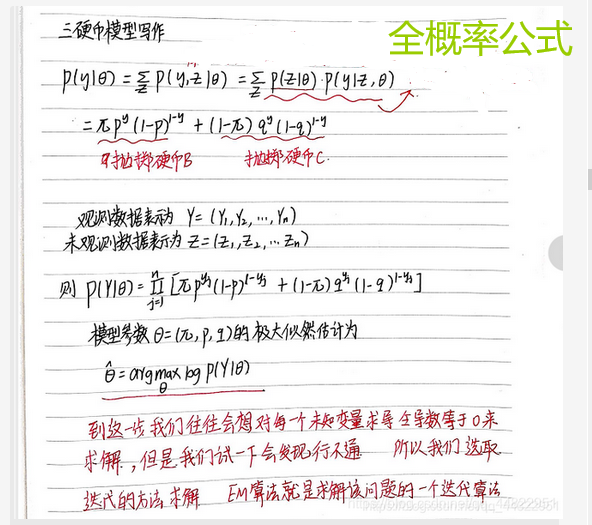 三硬币模型写作
全概率公式
P(y|θ) = ∑_z P(y,z|θ) = ∑_z P(z|θ)·P(y|z,θ)
= πp^y(1-p)^{1-y} + (1-π)q^y(1-q)^{1-y}
抛掷硬币B 抛掷硬币C.
观测数据表示为 Y=(Y₁,Y₂,…,Yn)
未观测数据表示为 Z=(Z₁,Z₂,…Zn)
则 P(Y|θ) = ∏_{j=1}^{n} [πp^{yj}(1-p)^{1-yj} + (1-π)q^{yj}(1-q)^{1-yj}]
模型参数 θ=(π,p,q)的极大似然估计为
θ̂ = argmax_θ log P(Y|θ)
到这一步我们往往会想对每一个未知变量求导令导数等于0来
求解,但是我们试一下会发现行不通 所以我们选取
迭代的方法求解 EM算法就是求解该问题的一个迭代算法